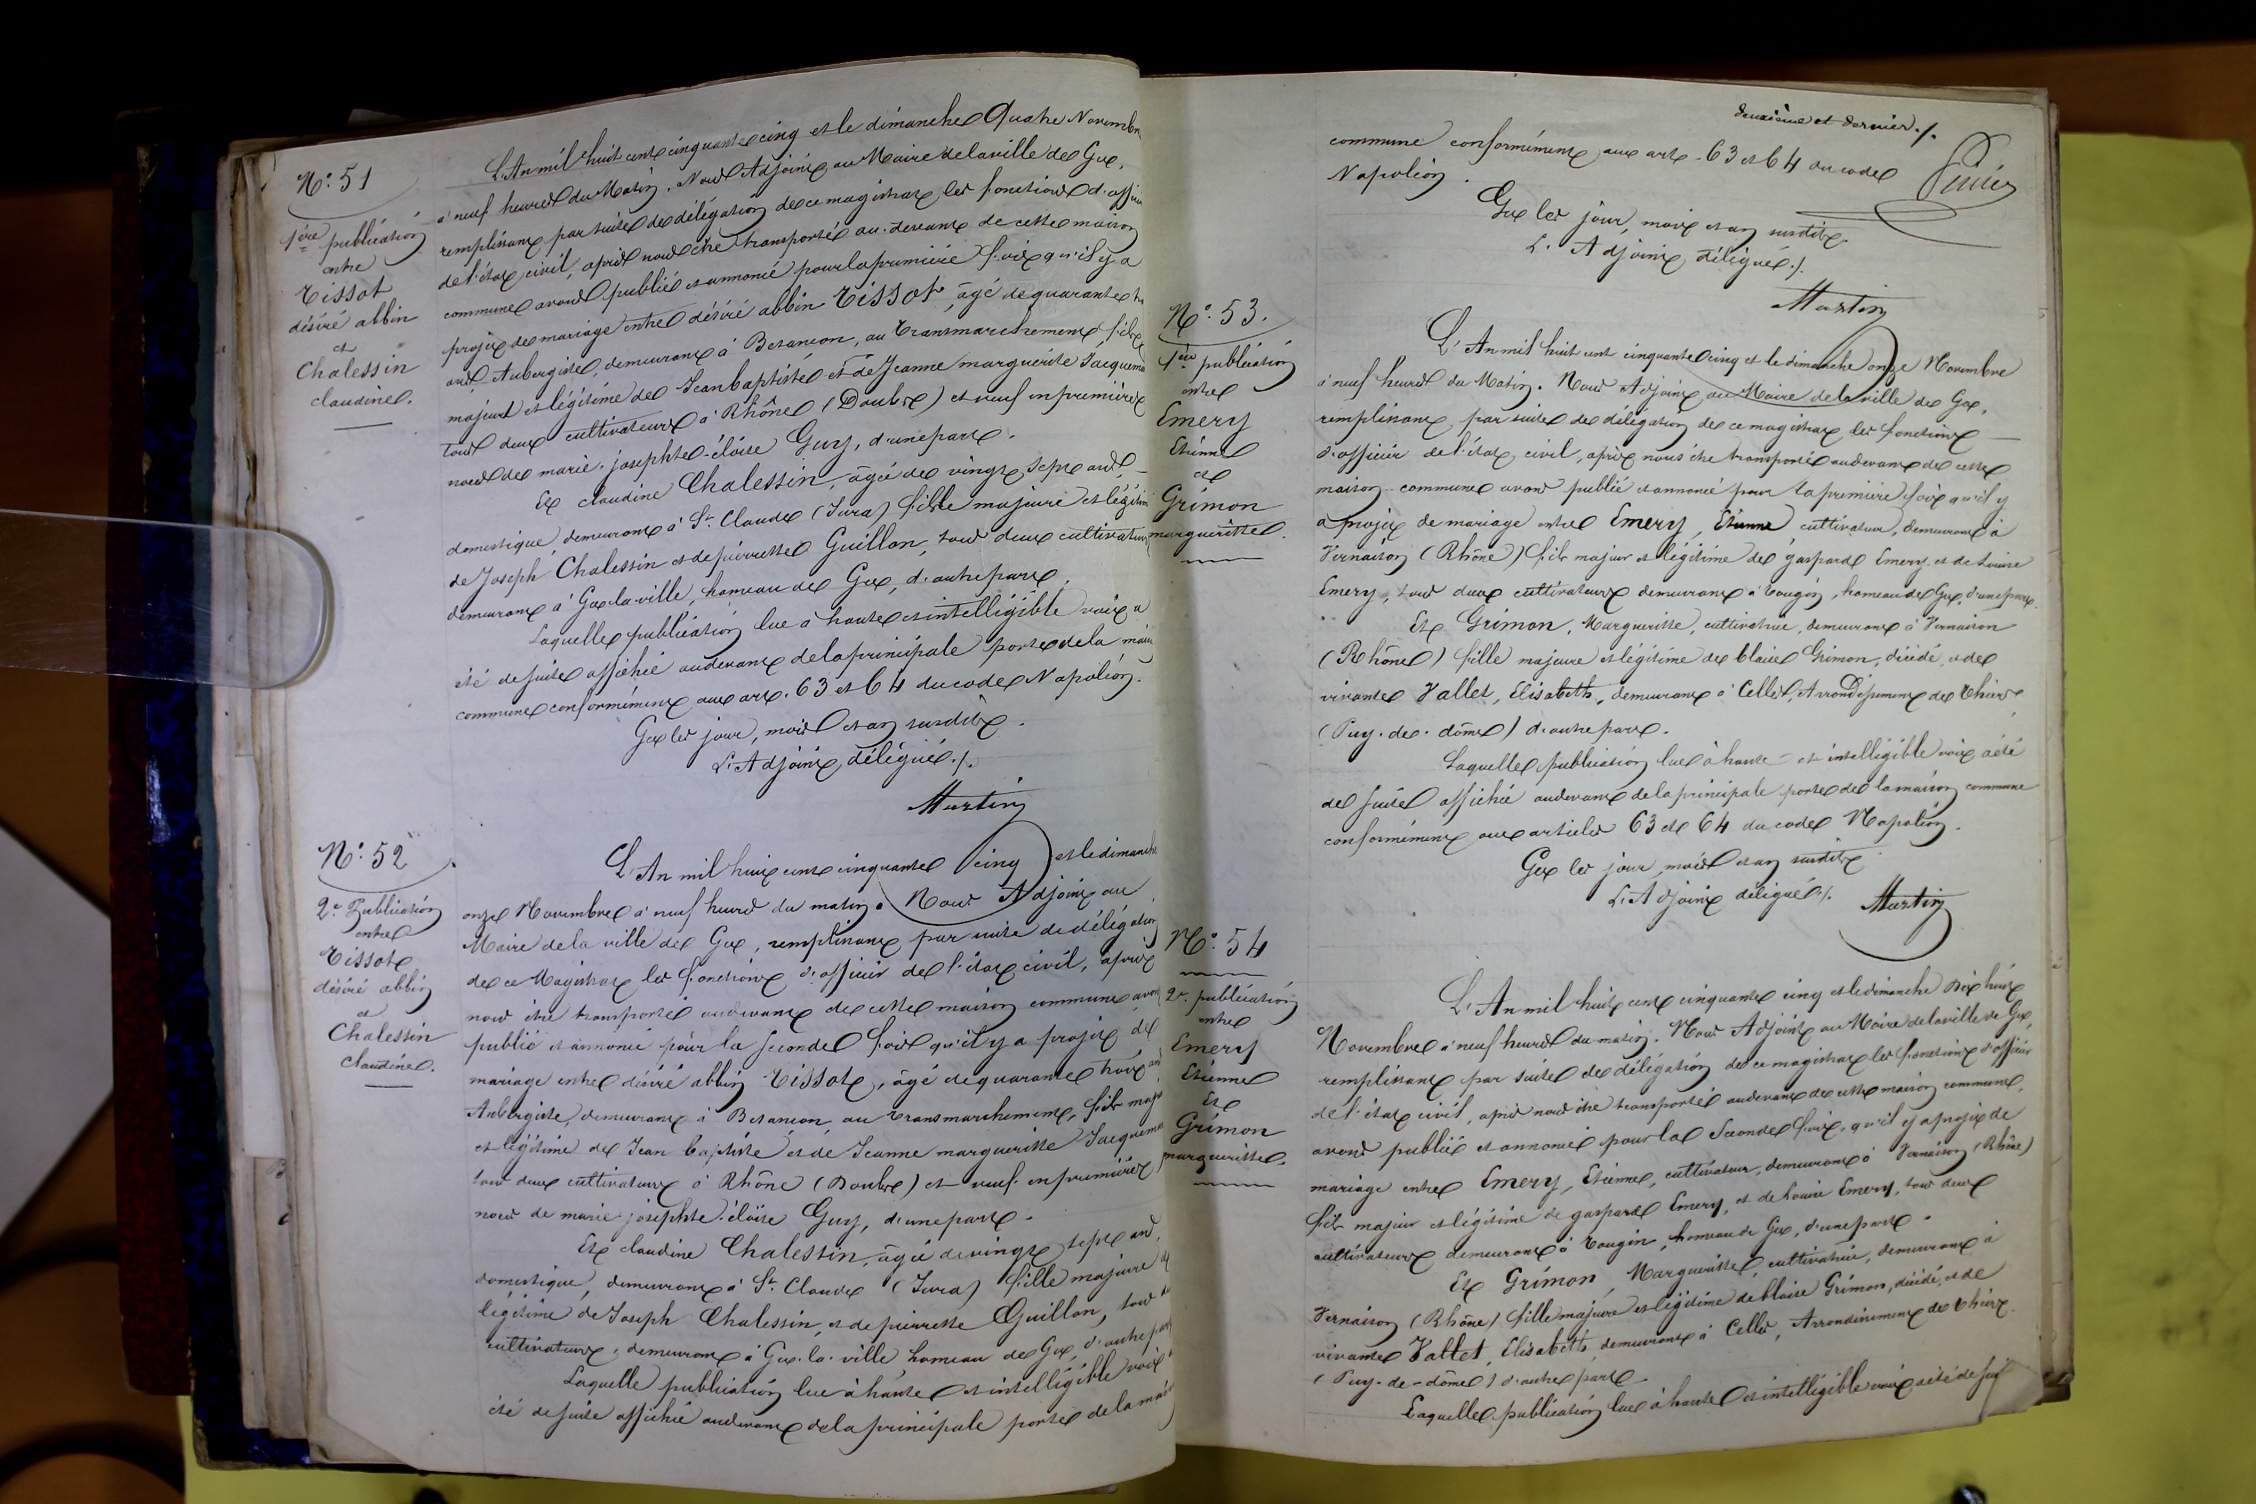 N.º 51
1ère publication
entre
Tissot
désiré abbin
et
Chalessin
claudine.
L'An mil huit cent cinquante cinq et le dimanche Quatre Novembre
à neuf heures du Matin. Nous Adjoint au Maire de la ville de Gex,
remplissant par suite de délégation de ce magistrat les fonctions d'offi
de l'état civil, après nous être transporté au-devant de cette maison
commune avons publié et annoncé pour la première fois qu'il y a
projet de mariage entre désiré abbin Tissot, âgé de quarante
ans, Aubergiste, demeurant à Besançon, au transmarchement, fils
majeur et légitime de Jean baptiste et de Jeanne marguerite Jacquem
tous deux cultivateurs à Rhône (Doubs) et veuf en premières
noces de marie josephte éloïse Guy, d'une part.
Et claudine Chalessin, âgée de vingt sept ans,
domestique, demeurant à St. Claude (Jura) fille majeure et légitime
de Joseph Chalessin et de pierrette Guillon, tous deux cultivateurs
demeurant à Gex-la-ville, hameau de Gex, d'autre part.
Laquelle publication lue à haute et intelligible voix a
été de suite affichée au devant de la principale porte de la mais
commune conformément aux art. 63 et 64 du code Napoléon.
Gex les jour, mois et an susdits.
L'Adjoint délégué ./.
Martin
N.º 52
2e Publication
entre
Tissot
désiré abbin
et
Chalessin
claudine.
L'An mil huit cent cinquante cinq et le dimanche
onze Novembre à neuf heures du matin. Nous Adjoint au
Maire de la ville de Gex, remplissant par suite de délégation
de ce Magistrat les fonctions d'officier de l'état civil, après
nous être transporté au devant de cette maison commune, avons
publié et annoncé pour la seconde fois qu'il y a projet de
mariage entre désiré abbin Tissot, âgé de quarante trois ans
Aubergiste, demeurant à Besançon, au transmarchement, fils maj
et légitime de Jean baptiste et de Jeanne marguerite Jacquem
tous deux cultivateurs à Rhône (Doubs) et veuf en premières
noces de marie josephte éloïse Guy, d'une part.
Et claudine Chalessin, âgée de vingt sept ans,
domestique, demeurant à St. Claude (Jura) fille majeure et
légitime de Joseph Chalessin, et de pierrette Guillon, tous
cultivateurs, demeurant à Gex-la-ville hameau de Gex, d'autre part
Laquelle publication lue à haute et intelligible voix
été de suite affichée au devant de la principale porte de la mais
deuxième et dernier ./.
commune conformément aux arts. 63 et 64 du code
Napoléon.
Gex les jour, mois et an susdits.
L'Adjoint délégué ./.
Martin
N.º 53.
1ère publication
entre
Emery
Etienne
et
Grimon
margueritte.
L'An mil huit cent cinquante cinq et le dimanche onze Novembre
à neuf heures du Matin. Nous Adjoint au Maire de la ville de Gex,
remplissant par suite de délégation de ce magistrat les fonctions
d'officier de l'état civil, après nous être transporté au devant de cette
maison commune avons publié et annoncé pour la première fois qu'il y
a projet de mariage entre Emery, Etienne cultivateur, demeurant à
Vernaison (Rhône) fils majeur et légitime de gaspard Emery et de Louise
Emery, tous deux cultivateurs demeurant à tougin, hameau de Gex, d'une part.
Et Grimon, Margueritte, cultivatrice, demeurant à Vernaison
(Rhône) fille majeure et légitime de blaise Grimon, décédé, et de
vivante Vallet, Elisabeth, demeurant à Celles, Arrondissement de Thiers
(Puy-de-dôme) d'autre part.
Laquelle publication lue à haute et intelligible voix a été
de suite affichée au devant de la principale porte de la maison commune
conformément aux articles 63 et 64 du code Napoléon.
Gex les jour, mois et an susdits
L'Adjoint délégué ./.
Martin
N.º 54
2e publication
entre
Emery
Etienne
Et
Grimon
marguerittte.
L'An mil huit cent cinquante cinq et le dimanche Dix huit
Novembre à neuf heures du matin. Nous Adjoint au Maire de la ville de Gex,
remplissant par suite de délégation de ce magistrat les fonctions d'officier
de l'état civil, après nous être transporté au devant de cette maison commune,
avons publié et annoncé pour la Seconde fois, qu'il y a projet de
mariage entre Emery, Etienne, cultivateur, demeurant à Vernaison (Rhône)
fils majeur et légitime de gaspard Emery, et de Louise Emery, tous deux
cultivateurs demeurant à tougin, hameau de Gex, d'une part.
Et Grimon, Marguerittte, cultivatrice, demeurant à
Vernaison (Rhône) fille majeure et légitime de blaise Grimon, décédé, et de
vivante Vallet, Elisabeth, demeurant à Celles, Arrondissement de Thiers.
(Puy-de-dôme) d'autre part.
Laquelle publication lue à haute et intelligible voix a été de sui